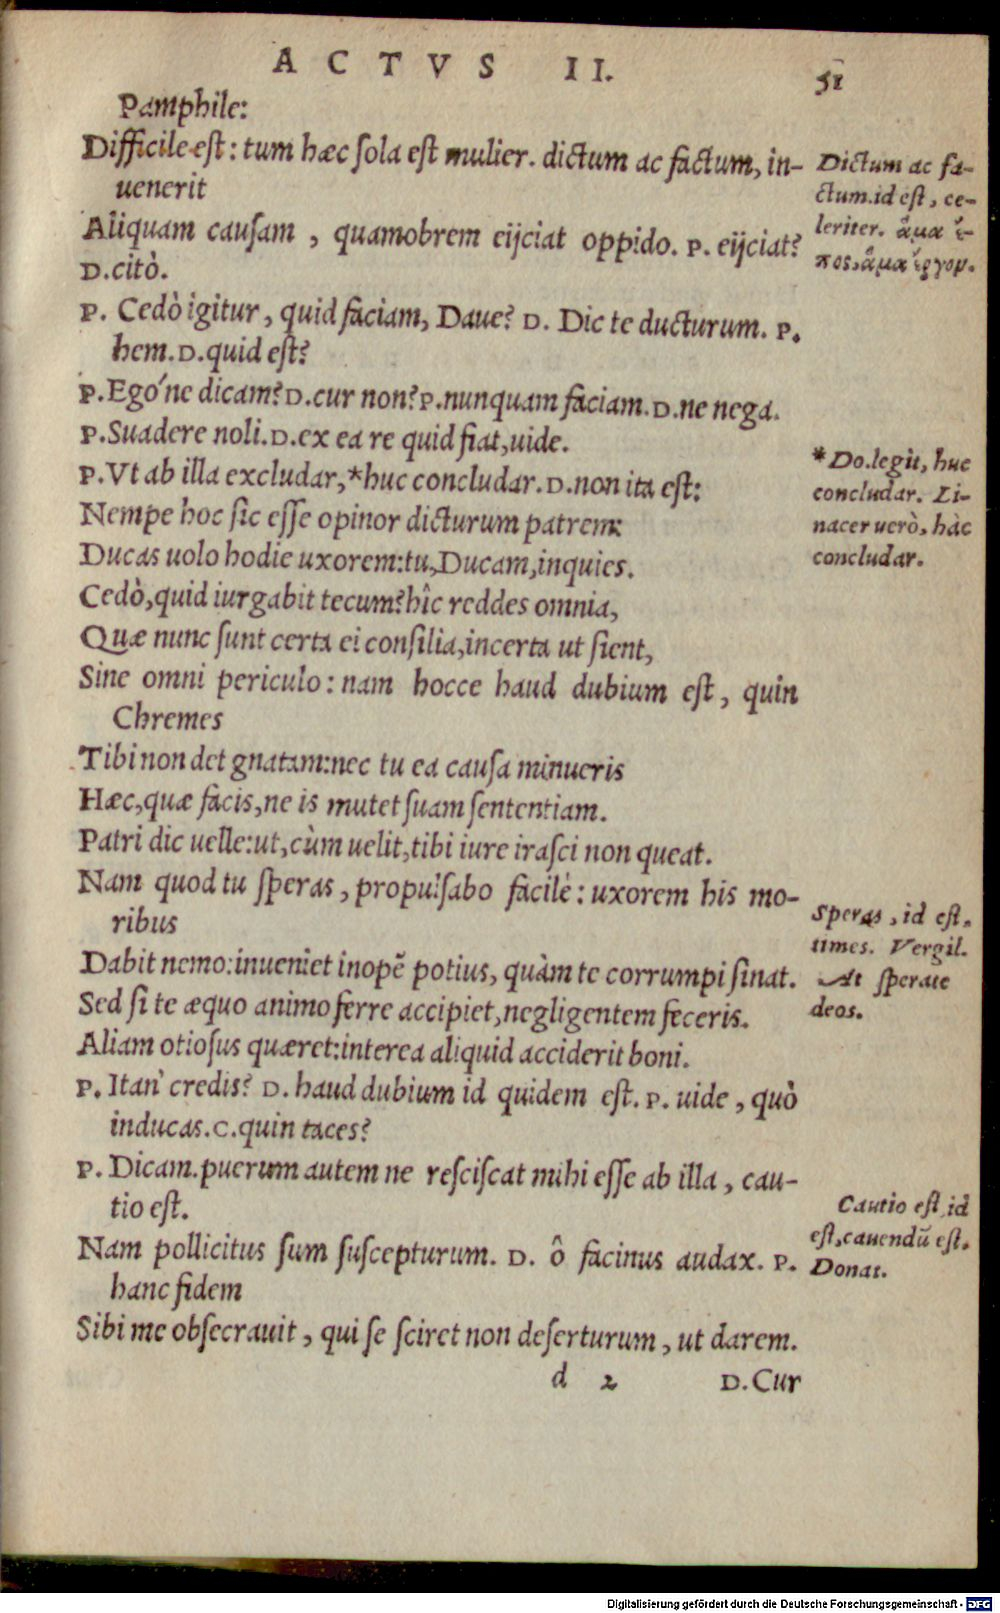 ACTVS II. 51
Pamphile:
Difficile est: tum hæc sola est mulier. dictum ac factum, in-
uenerit
Aliquam causam, quamobrem eijciat oppido. P. eijciat?
D. citò.
P. Cedò igitur, quid faciam, Daue? D. Dic te ducturum. P.
hem. D. quid est?
P. Egóne dicam? D. cur non? P. nunquam faciam. D. ne nega.
P. Suadere noli. D. ex ea re quid fiat, uide.
P. Vt ab illa excludar, *huc concludar. D. non ita est:
Nempe hoc sic esse opinor dicturum patrem:
Ducas uolo hodie uxorem: tu, Ducam, inquies.
Cedò, quid iurgabit tecum? hîc reddes omnia,
Quæ nunc sunt certa ei consilia, incerta ut sient,
Sine omni periculo: nam hocce haud dubium est, quin
Chremes
Tibi non det gnatam: nec tu ea causa minueris
Hæc, quæ facis, ne is mutet suam sententiam.
Patri dic uelle: ut, cùm uelit, tibi iure irasci non queat.
Nam quod tu speras, propulsabo facilè: uxorem his mo-
ribus
Dabit nemo: inueniet inopē potius, quàm te corrumpi sinat.
Sed si te æquo animo ferre accipiet, negligentem feceris.
Aliam otiosus quæret: interea aliquid acciderit boni.
P. Itan' credis? D. haud dubium id quidem est. P. uide, quò
inducas. C. quin taces?
P. Dicam. puerum autem ne resciscat mihi esse ab illa, cau-
tio est.
Nam pollicitus sum suscepturum. D. ô facinus audax. P.
hanc fidem
Sibi me obsecrauit, qui se sciret non deserturum, ut darem.
d 2 D. Cur
Dictum ac fa-
ctum. id est, ce-
leriter. ἅμα ἔ-
πος, ἅμα ἔργον.
*Do. legit, huc
concludar. Li-
nacer uerò, hàc
concludar.
Speras, id est,
times. Vergil.
At sperate
deos.
Cautio est, id
est, cauendū est.
Donat.
Digitalisierung gefördert durch die Deutsche Forschungsgemeinschaft - DFG